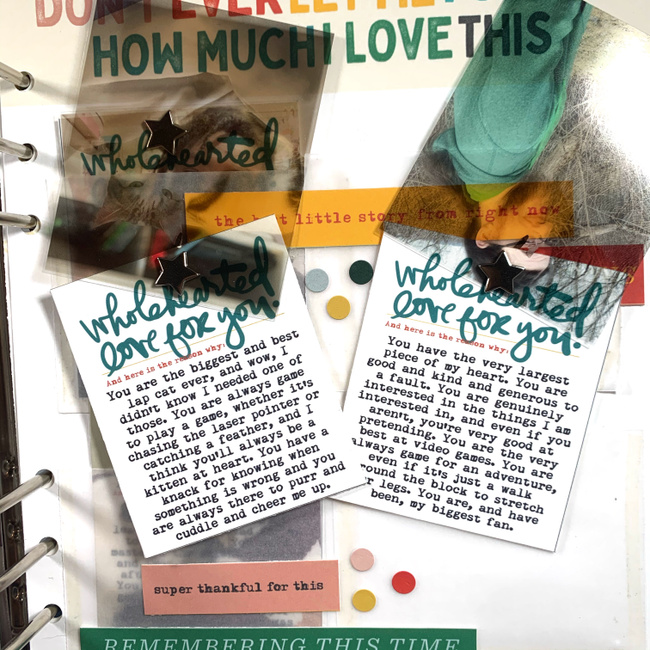 DON'T EVER LET ME
HOW MUCH I LOVE THIS
wholehearted
the best little story from right now
wholehearted
love for you.
And here is the reason why:
You are the biggest and best
lap cat ever, and wow, I
didn't know I needed one of
those. You are always game
to play a game, whether it's
chasing the laser pointer or
catching a feather, and I
think you'll always be a
kitten at heart. You have a
knack for knowing when
something is wrong and you
are always there to purr and
cuddle and cheer me up.
wholehearted
love for you.
And here is the reason why:
You have the very largest
piece of my heart. You are
good and kind and generous to
a fault. You are genuinely
interested in the things I am
interested in, and even if you
aren't, you're very good at
pretending. You are the very
best at video games. You are
always game for an adventure,
even if it's just a walk
round the block to stretch
r legs. You are, and have
been, my biggest fan.
super thankful for this
REMEMBERING THIS TIME